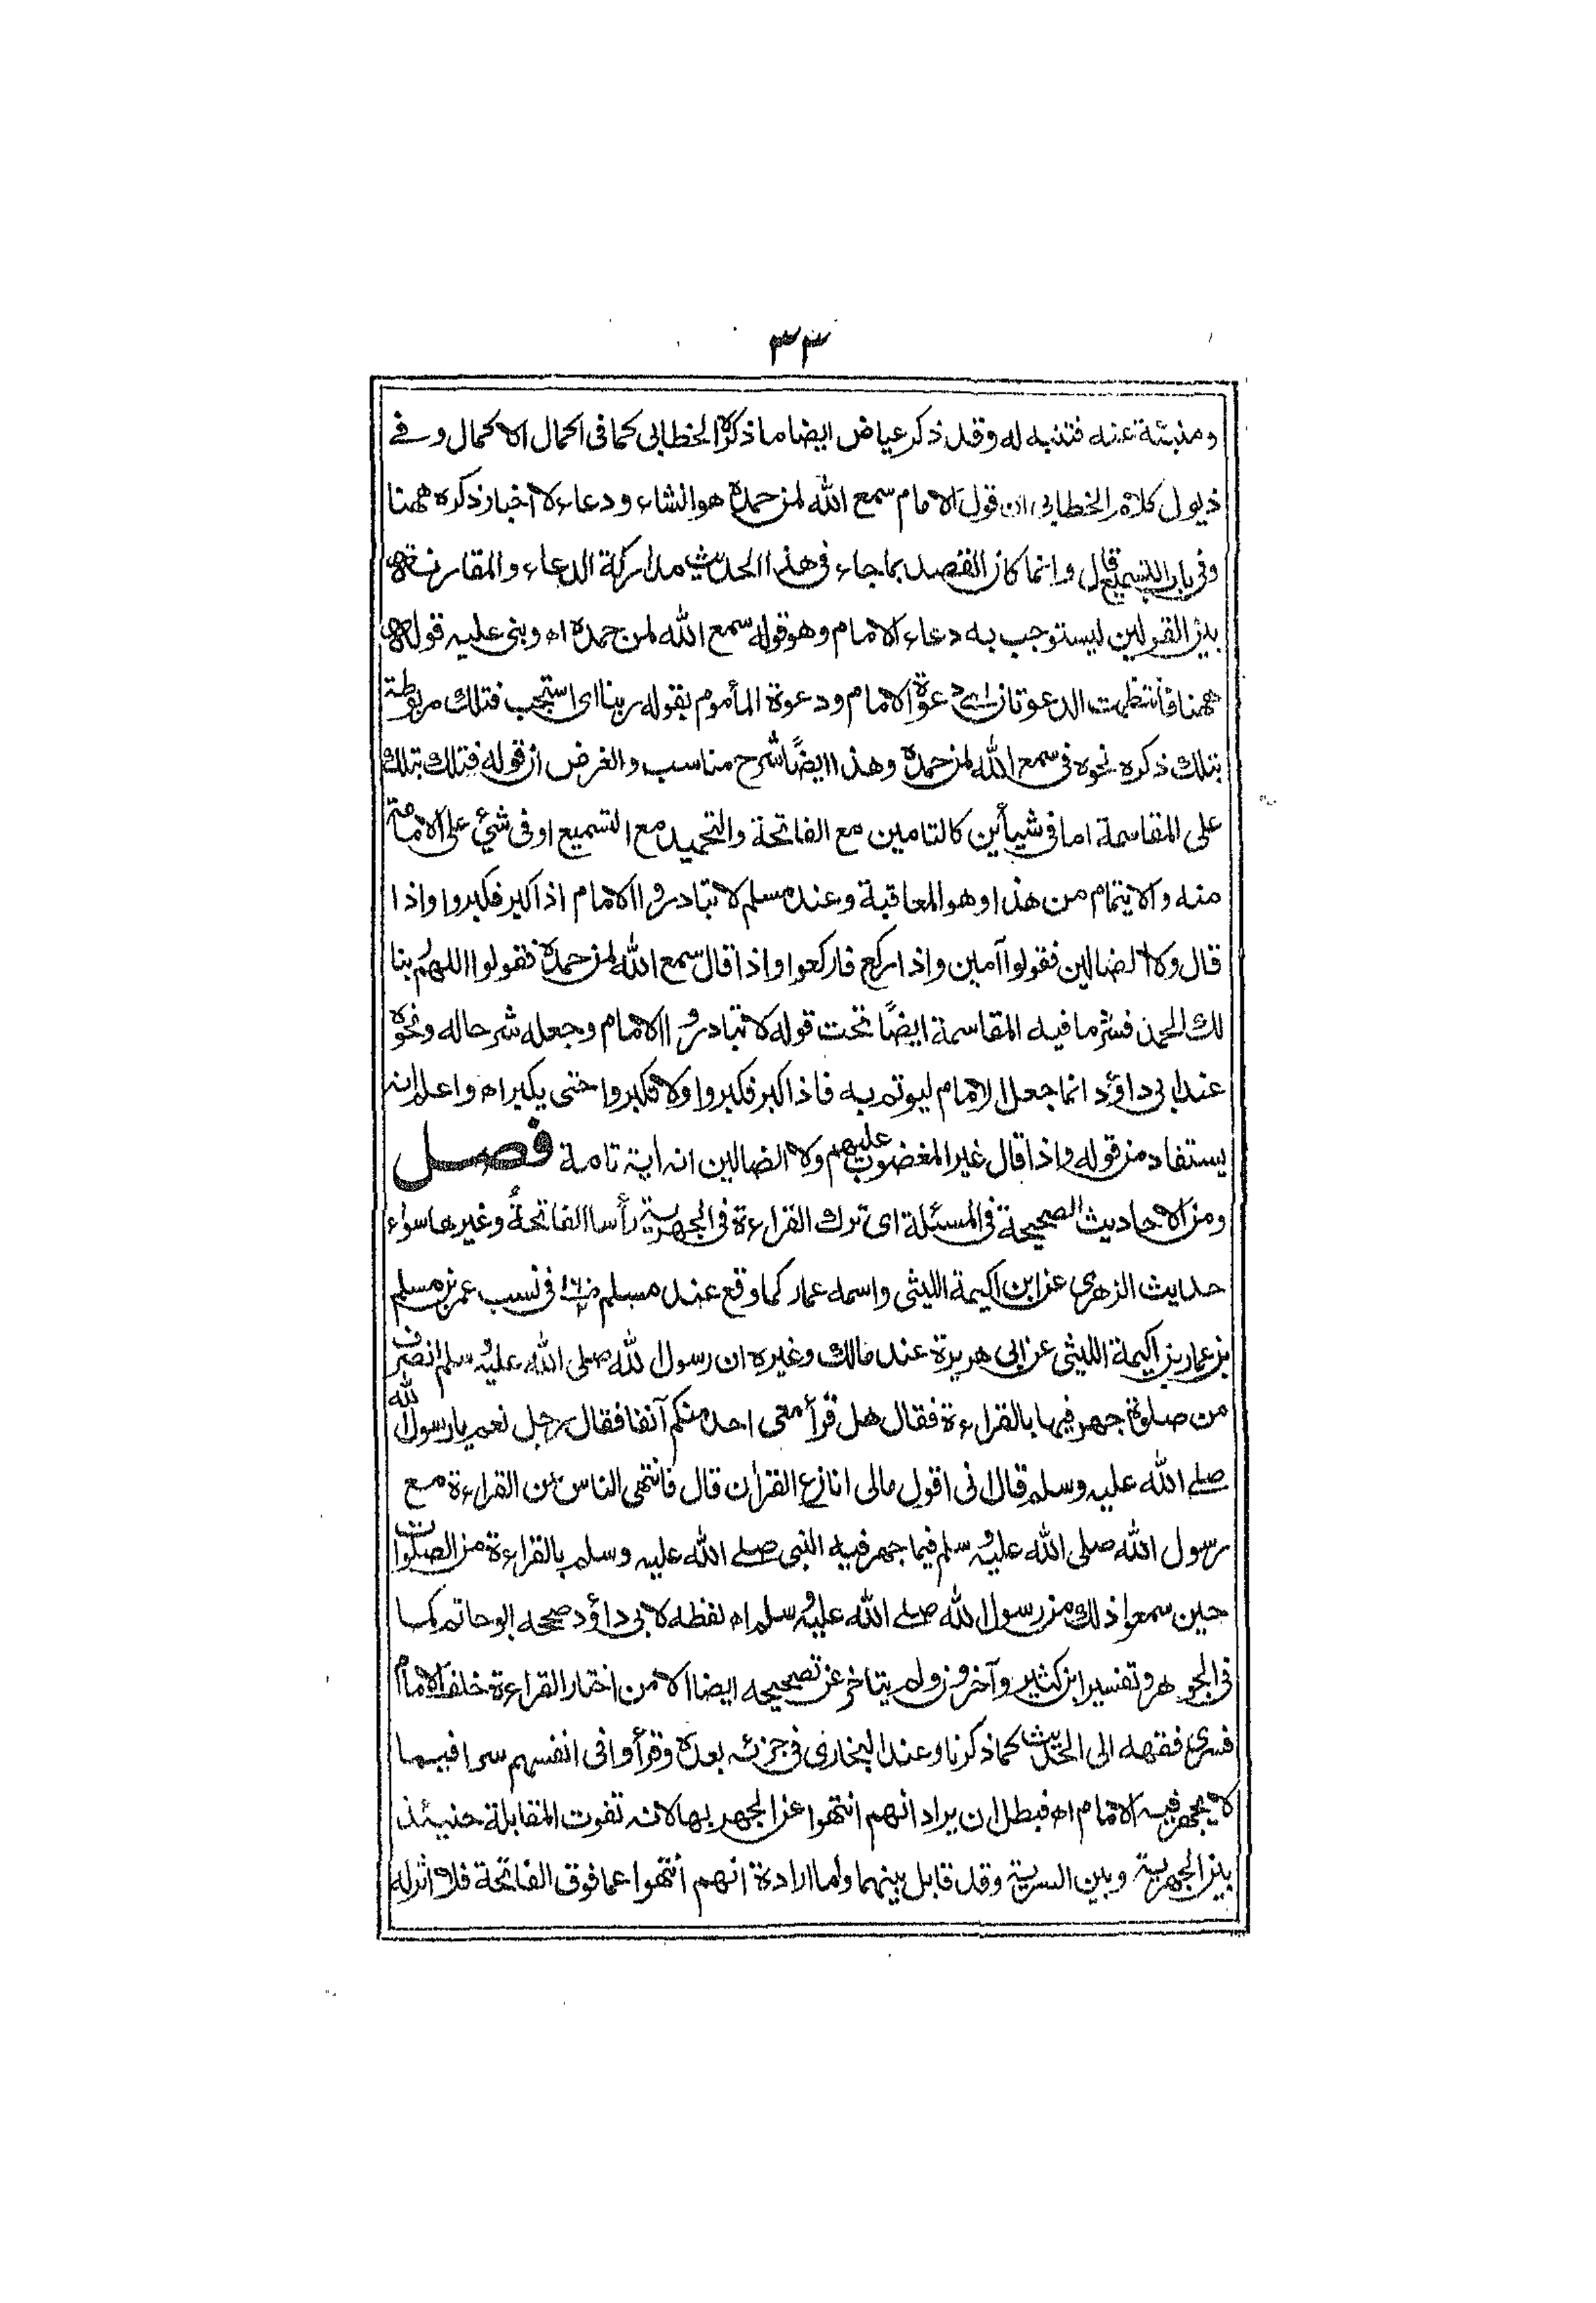 ٣٣
ومنبئة عنه فتنبه له وقد ذكر عياض ايضا ما ذكره الخطابى كما فى اكمال الاكمال وفے
ذيول كلام الخطابى ان قول الامام سمع الله لمن حمده هو انشاء ودعاء لا اخبار ذكره ههنا
وفى باب التسميع قال وانما كان القصد بما جاء فى هذا الحديث مداركة الدعاء والمقارنة
بين القولين ليستوجب به دعاء الامام وهو قوله سمع الله لمن حمده اه وبنى عليه قوله
ههنا فانتظمت الدعوتان احدى دعوة الامام ودعوة المأموم بقوله ربنا اى استجب فتلك مربوطة
بتلك ذكره نحوه فى سمع الله لمن حمده وهذا ايضًا شرح مناسب والغرض ان قوله فتلك بتلك
على المقاسمة اما فى شيأين كالتامين مع الفاتحة والتحميد مع التسميع او فى شئ على الامامة
منه والايتمام من هذا وهو المعاقبة وعند مسلم لا تبادروا الامام اذا كبر فكبروا واذا
قال ولا الضالين فقولوا آمين واذا ركع فاركعوا واذا قال سمع الله لمن حمده فقولوا اللهم ربنا
لك الحمد فنشر ما فيه المقاسمة ايضًا تحت قوله لا تبادروا الامام وجعله شرحا له ونحوه
عند ابى داؤد انما جعل الامام ليوتم به فاذا كبر فكبروا ولا تكبروا حتى يكبر اه واعلم انه
يستفاد من قوله واذا قال غير المغضوب عليهم ولا الضالين انه اية تامة فصل
ومن الاحاديث الصحيحة فى المسئلة اى ترك القراءة فى الجهرية رأسا الفاتحةُ وغيرها سواء
حديث الزهرى عن ابن اكيمة الليثى واسمه عمار كما وقع عند مسلم فى نسب عمر بن مسلم
بن عمار بن اكيمة الليثى عن ابى هريرة عند مالك وغيره ان رسول لله صلى الله عليه وسلم انصرف
من صلوة جهر فيها بالقراءة فقال هل قرأ معى احد منكم آنفا فقال رجل نعم يا رسول الله
صلے الله عليه وسلم قال انى اقول مالى انازع القرأن قال فانتهى الناس عن القراءة مع
رسول الله صلى الله عليه وسلم فيما جهر فيه النبى صلے الله عليه وسلم بالقراءة من الصلوات
حين سمعوا ذلك من رسول الله صلے الله عليه وسلم اه لفظه لابى داؤد صححه ابو حاتم كما
فى الجوهر وتفسير ابن كثير وآخرون ولم يتاخر عن تصحيحه ايضا الا من اختار القراءة خلف الامام
فسرى فقهه الى الحديث كما ذكرنا وعند البخارى فى جزئه بعده وقرأوا فى انفسهم سرا فيما
لا يجهر فيه الامام اه فبطل ان يراد انهم انتهوا عن الجهر بها لانه تفوت المقابلة حينئذ
بين الجهرية وبين السرية وقد قابل بينهما واما ارادة انهم انتهوا عما فوق الفاتحة فلا اثر له